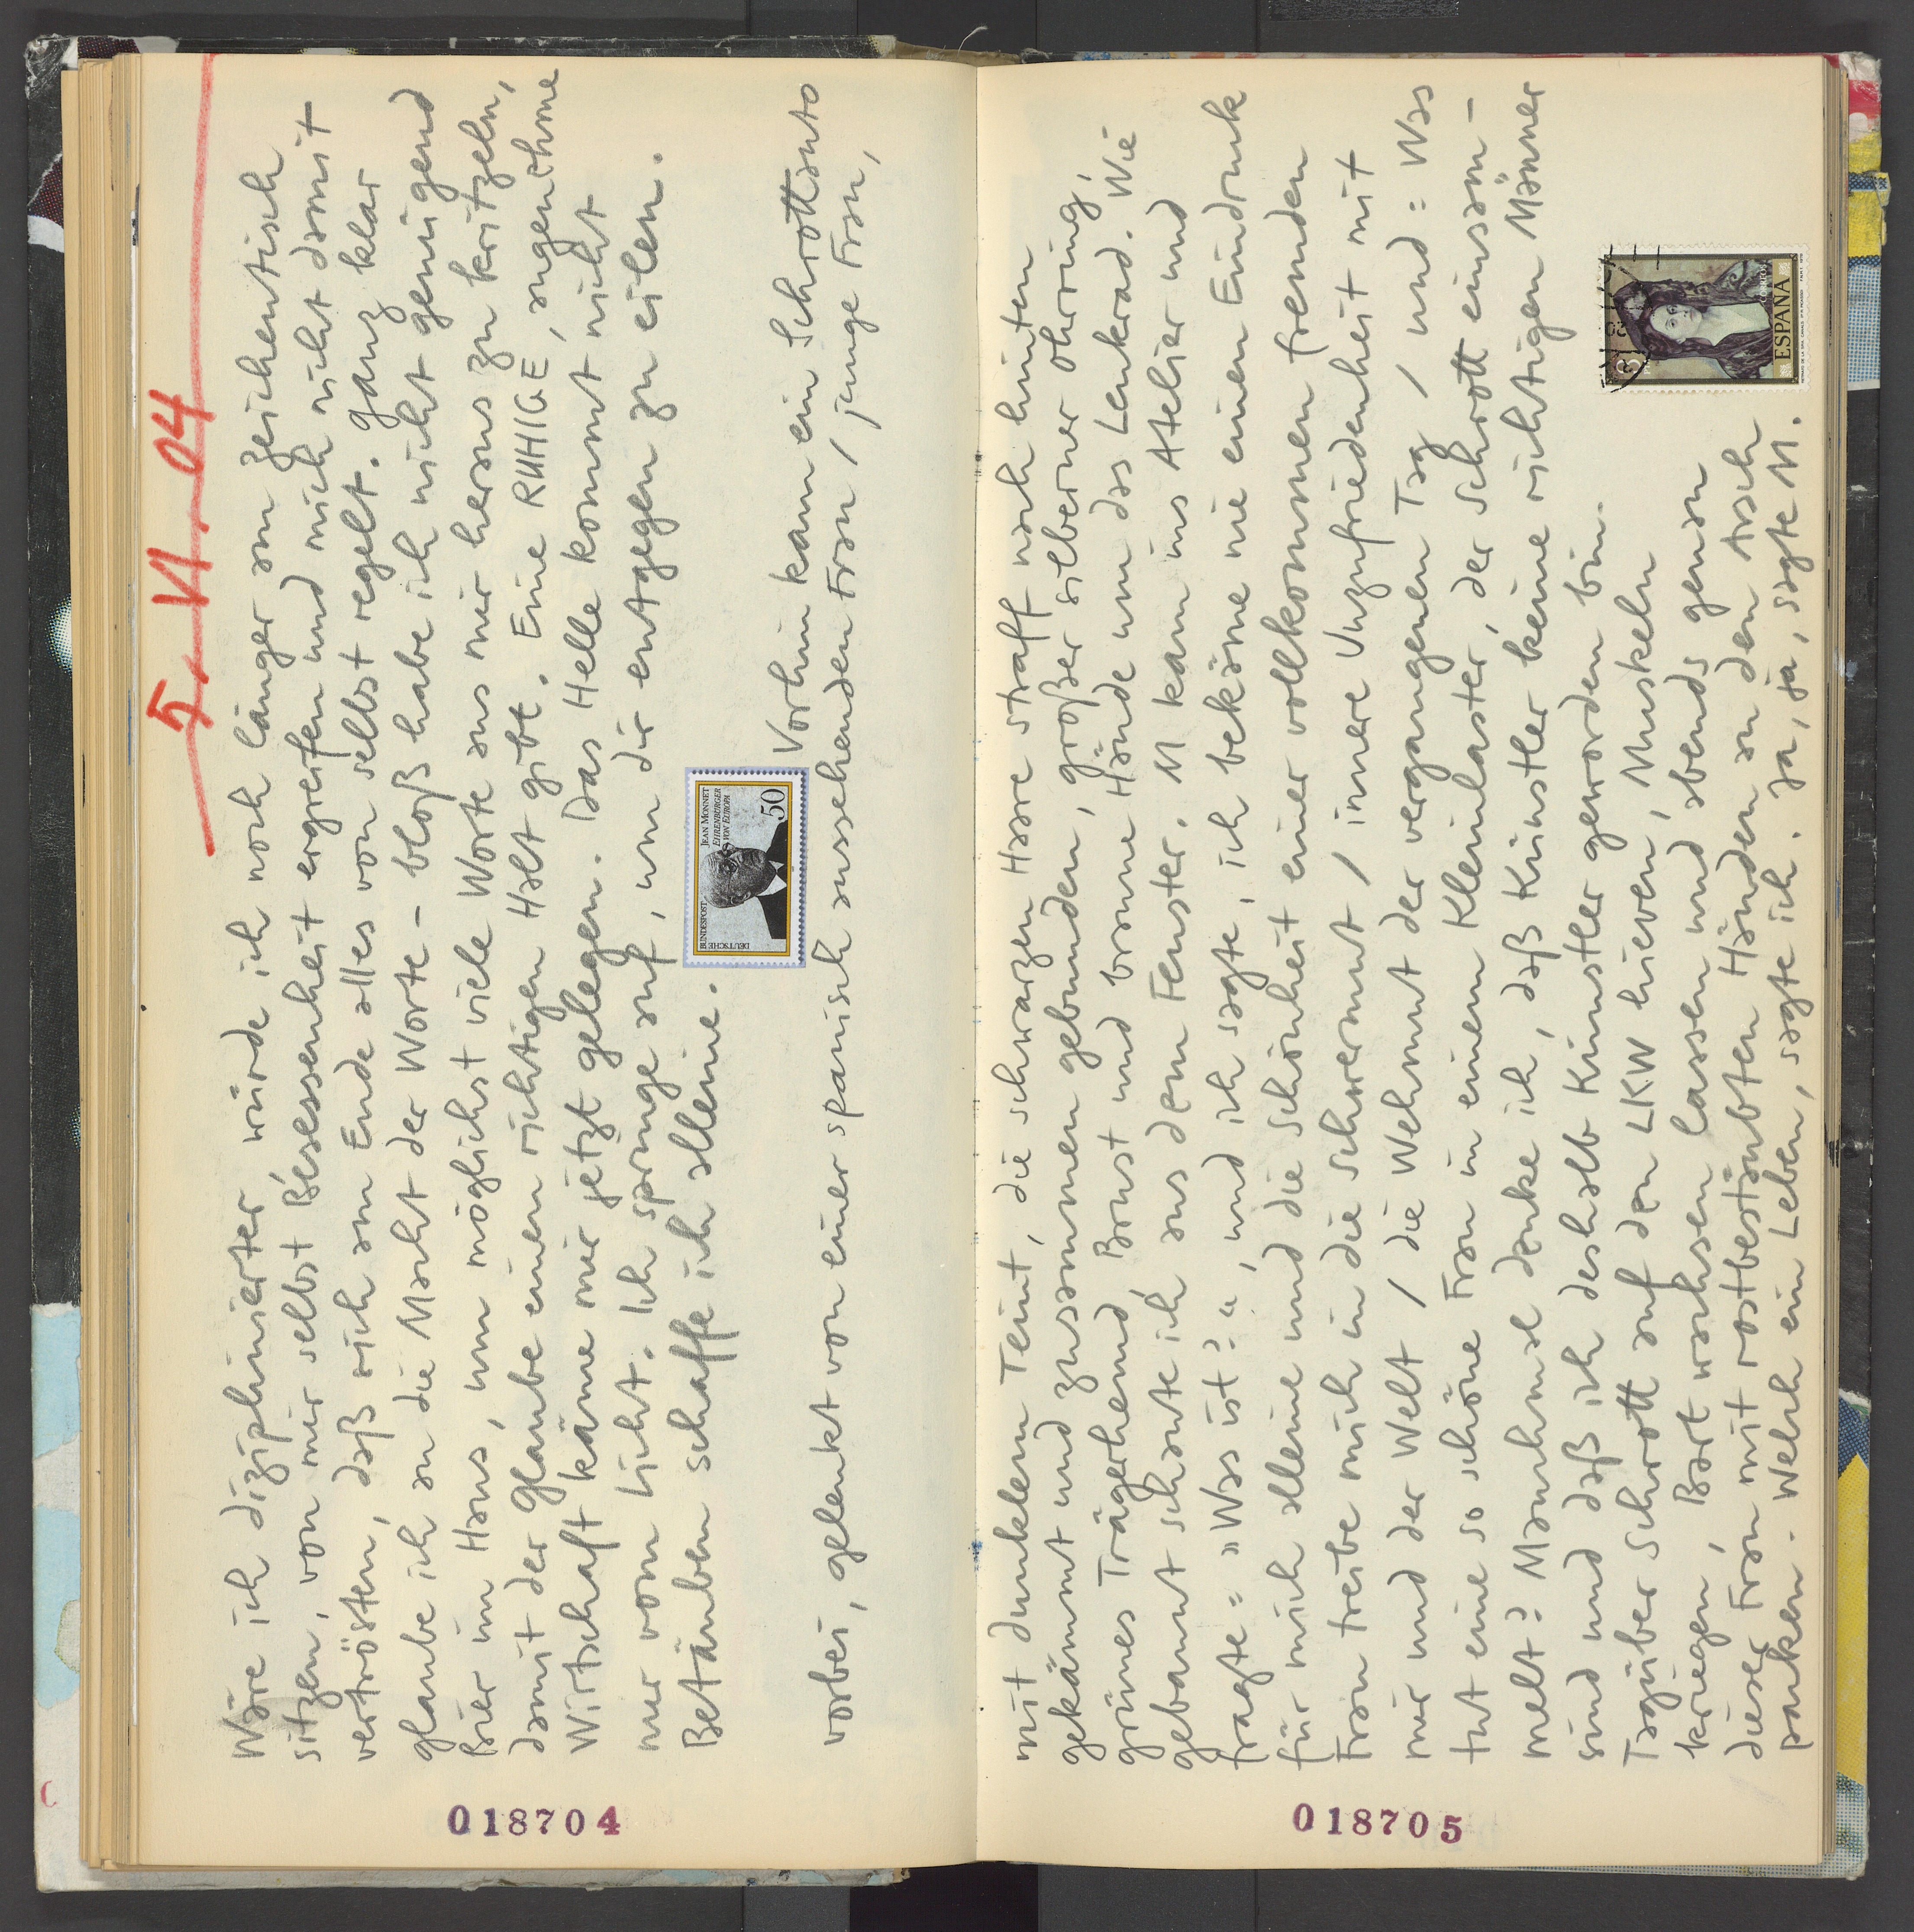 5. VI. 04
Wäre ich diziplinierter, würde ich noch länger am Zeichentisch
sitzen, von mir selbst Besessenheit ergreifen und mich nicht damit
vertrösten, daß sich am Ende alles von selbst regelt. Ganz klar
glaube ich an die Macht der Worte - bloß habe ich nicht genügend
Bier im Haus, um möglichst viele Worte aus mir heraus zu kritzeln,
damit der Glaube einen richtigen Halt gibt. Eine RUHIGE, angenehme
Wirtschaft käme mir jetzt gelegen. Das Helle kommt nicht
nur vom Licht. Ich springe auf, um dir entgegen zu eilen.
Betäuben schaffe ich alleine.
DEUTSCHE BUNDESPOST
JEAN MONNET
EHRENBÜRGER
VON EUROPA
50
Vorhin kam ein Schrottauto
vorbei, gelenkt von einer spanisch aussehenden Frau, junge Frau,
018704
mit dunklem Teint, die schwarzen Haare straff nach hinten
gekämmt und zusammen gebunden, großer silberner Ohrring,
grünes Trägerhemd, Brust und braune Hände um das Lenkrad. Wie
gebannt schaute ich aus dem Fenster. M kam ins Atelier und
fragte: "Was ist?", und ich sagte, ich bekäme nie einen Eindruck
für mich alleine und die Schönheit einer vollkommen fremden
Frau treibe mich in die Schwermut / innere Unzufriedenheit mit
mir und der Welt / die Wehmut der vergangenen Tag / und: Was
tut eine so schöne Frau in einem Kleinlaster, der Schrott einsam-
melt? Manchmal denke ich, daß Künstler keine richtigen Männer
sind und daß ich deshalb Künstler geworden bin.
Tagüber Schrott auf den LKW hieven, Muskeln
kriegen, Bart wachsen lassen und abends genau
dieser Frau mit rostbestäubten Händen an den Arsch
packen. Welch ein Leben, sagte ich. Ja, ja, sagte M.
3
ESPAÑA
CORREOS
018705